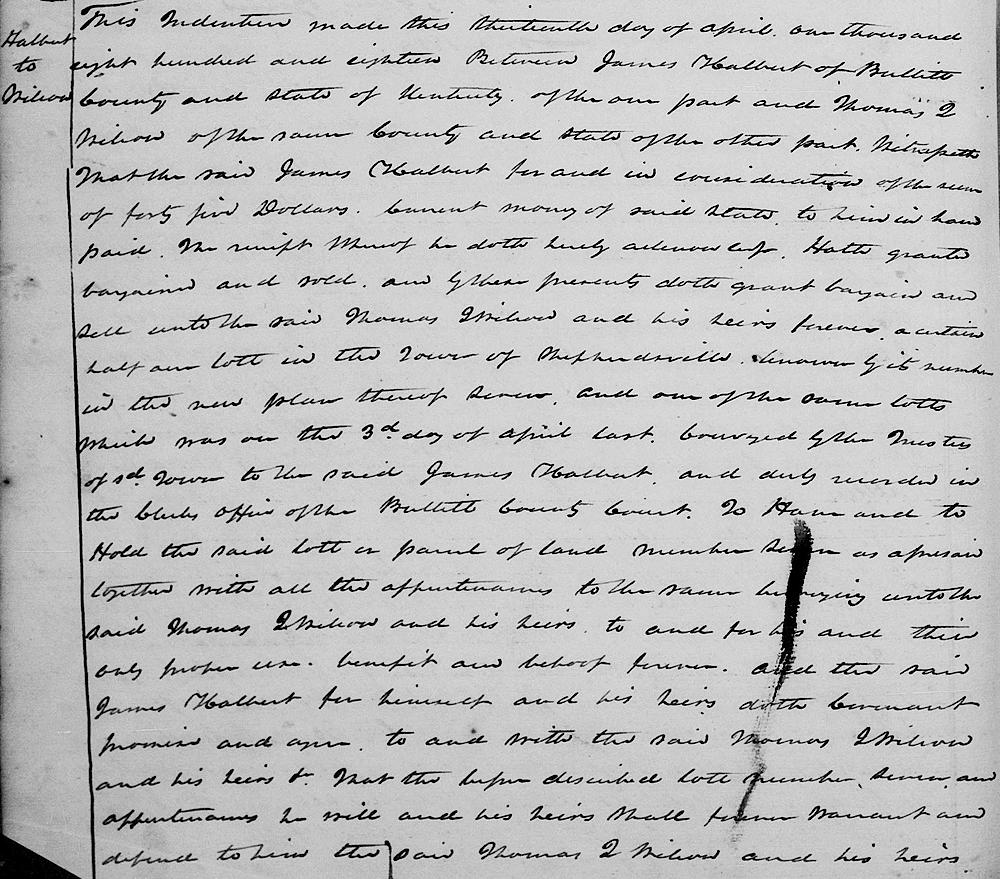 Halbert
to
Wilson
This Indenture made this thirteenth day of april. one thousand
eight hundred and eighteen Between James Halbert of Bullitt
County and State of Kentucky. of the one part and Thomas Q
Wilson of the same County and State of the other part. Witnesseth
That the said James Halbert for and in consideration of the sum
of forty five Dollars. Current money of said State, to him in hand
paid. The receipt thereof he doth hereby acknowledge. Hath granted
bargained and sold. and by these presents doth grant bargain and
Sell unto the said Thomas Q Wilson and his heirs forever, a certain
half acre lott in the Town of Shepherdsville. known by its number
in the new plan thereof Seven, and one of the same lotts
which was on the 3d. day of april last. Conveyed by the Trustees
of sd. Town to the said James Halbert, and duly recorded in
the Clerks office of the Bullitt County Court. To Have and to
Hold the said lott or parcel of land number Seven as aforesaid
together with all the appurtenances to the same belonging unto the
said Thomas Q Wilson and his heirs, to and for his and their
only proper use. benefit and behoof forever. and the said
James Halbert for himself and his heirs doth Covenant
promise and agree, to and with the said Thomas Q Wilson
and his heirs &c That the before described lott number, Seven, and
appurtenances he will and his heirs Shall forever warrant and
defend to him the said Thomas Q Wilson and his heirs.